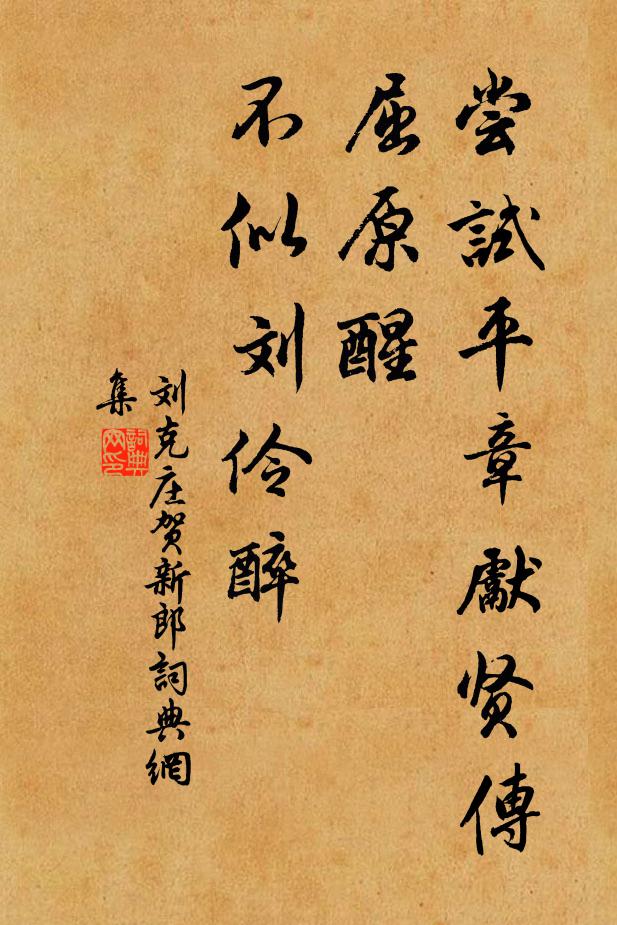 尝試平章獻贤傳
屈原醒
不似刘伶醉
刘克庄贺新郎詞典網
集
詞典
网印